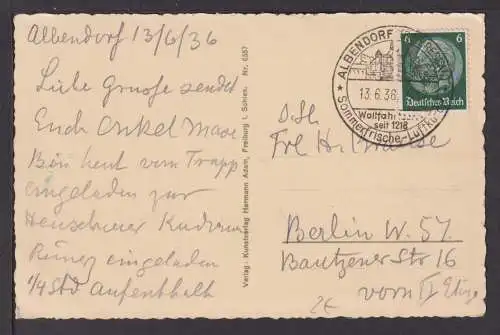 Albendorf 13/6/36
Liebe Grüsse sendet
Euch Onkel Max
Bin heut vom Trapp
eingeladen zur
eingeladen
1/4 Std Aufenthalt
Verlag: Kunstverlag Hermann Adam, Freiburg i. Schles. Nr. 6357
★ ALBENDORF
13.6.36
Wallfahrtsort
seit 1218
Sommerfrische-Luftkurort
6 6
Deutsches Reich
Frl H.
Berlin W. 57.
Bautzener Str 16
vorn II Etg
2€